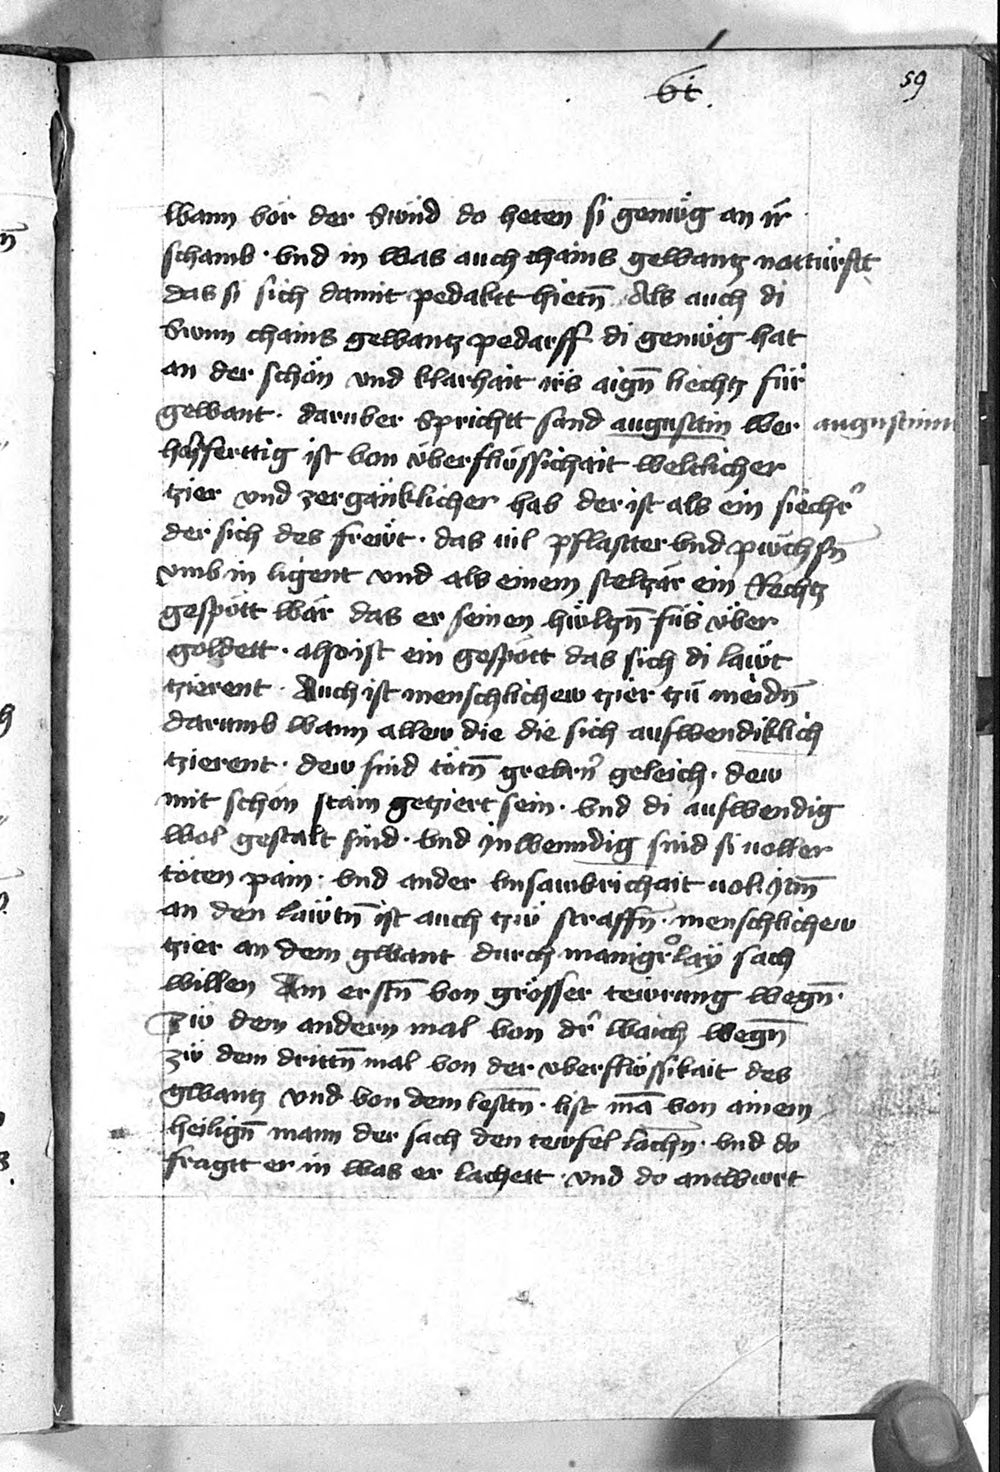 vi.
59
wann vor der Sünd do heten si genüg an ir
schamb · vnd in was auch chains gewantz nottürfft
das si sich damit pedakt hietn̄ Als auch di
Sunn chains gewantz pedarff di genüg hat
an der schön vnd klarhait irs aign̄ liechtz für
gewant · daruber Sprichtt sand augustin wer
augustinus
hoffertig ist von vberflüssichait weltlicher
tzier vnd zergänklicher hab der ist als ein siechr̄
der sich des frewt · das vil pflastter vnd püchsn̄
vmb in ligent vnd als einem steltzär ein Rechtz
gespött wär das er seinen hültzn̄ füs vber
goldett · also ist ein gespött das sich di läwt
tzierent · Auch ist menschlichew tzier tzu meidn̄
darumb wann allew die die sich auswendiklich
tzierent · dew sind totn̄ grebrn̄ geleich · dew
mit schön stain getziert sein · vnd di auswendig
wol gestalt sind · vnd Inwenndig sind si voller
töten pain · vnd ander vnsawbrichait vol · Itm̄
an den läwtn̄ ist auch tzw straffn̄ · menschlichew
tzier an dem gwant durch manigr̄lay sach
willen Am erstn̄ von grösser tewrung wegn̄ ·
Zw dem andern mal von dr̄ waich wegn̄
zw dem drittn̄ mal von der vberflüssikait des
gwantz vnd von dem lesttn̄ · list mā von ainem
heilign̄ mann der sach den tewfel lachn̄ · vnd do
fragtt er in was er lachett · vnd do antwurt